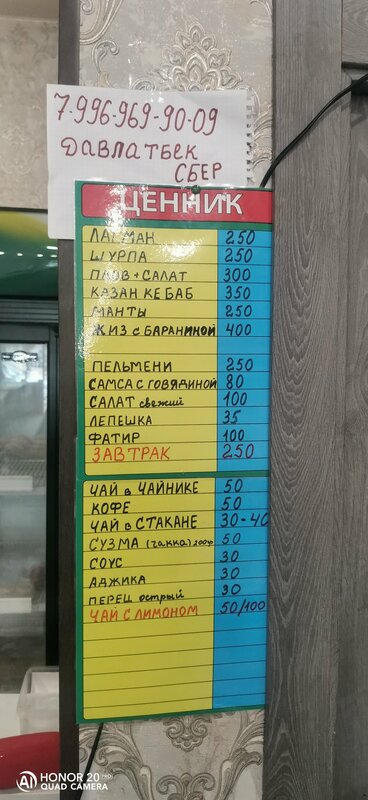 7-996-969-90-09
ДАВЛАТБЕК
СБЕР
ЦЕННИК
ЛАГМАН 250
ШУРПА 250
ПЛОВ + САЛАТ 300
КАЗАН КЕБАБ 350
МАНТЫ 250
ЖИЗ С БАРАНИНОЙ 400
ПЕЛЬМЕНИ 250
САМСА С ГОВЯДИНОЙ 80
САЛАТ свежий 100
ЛЕПЕШКА 35
ФАТИР 100
ЗАВТРАК 250
ЧАЙ в ЧАЙНИКЕ 50
КОФЕ 50
ЧАЙ в СТАКАНЕ 30-40
СУЗМА (чакка) 200гр 50
СОУС 30
АДЖИКА 30
ПЕРЕЦ острый 30
ЧАЙ С ЛИМОНОМ 50/100
HONOR 20 PRO
AI QUAD CAMERA